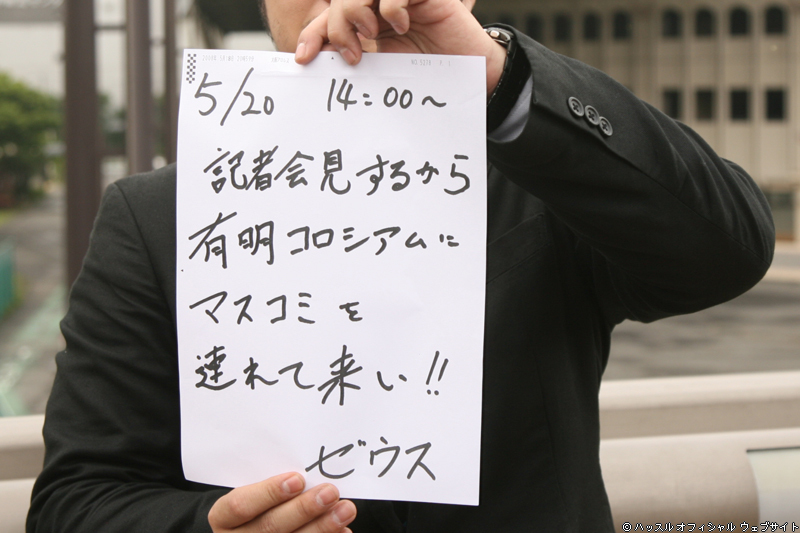 5/20 14:00～
記者会見するから
有明コロシアムに
マスコミを
連れて来い!!
ゼウス
© ハッスル オフィシャル ウェブサイト